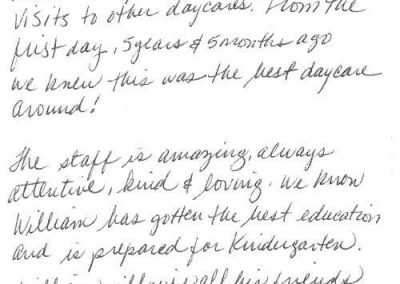 visits to other daycares. From the
first day, 5 years & 5 months ago
we knew this was the best daycare
around!
The staff is amazing, always
attentive, kind & loving. We know
William has gotten the best education
and is prepared for Kindergarten.
William will miss all his friends